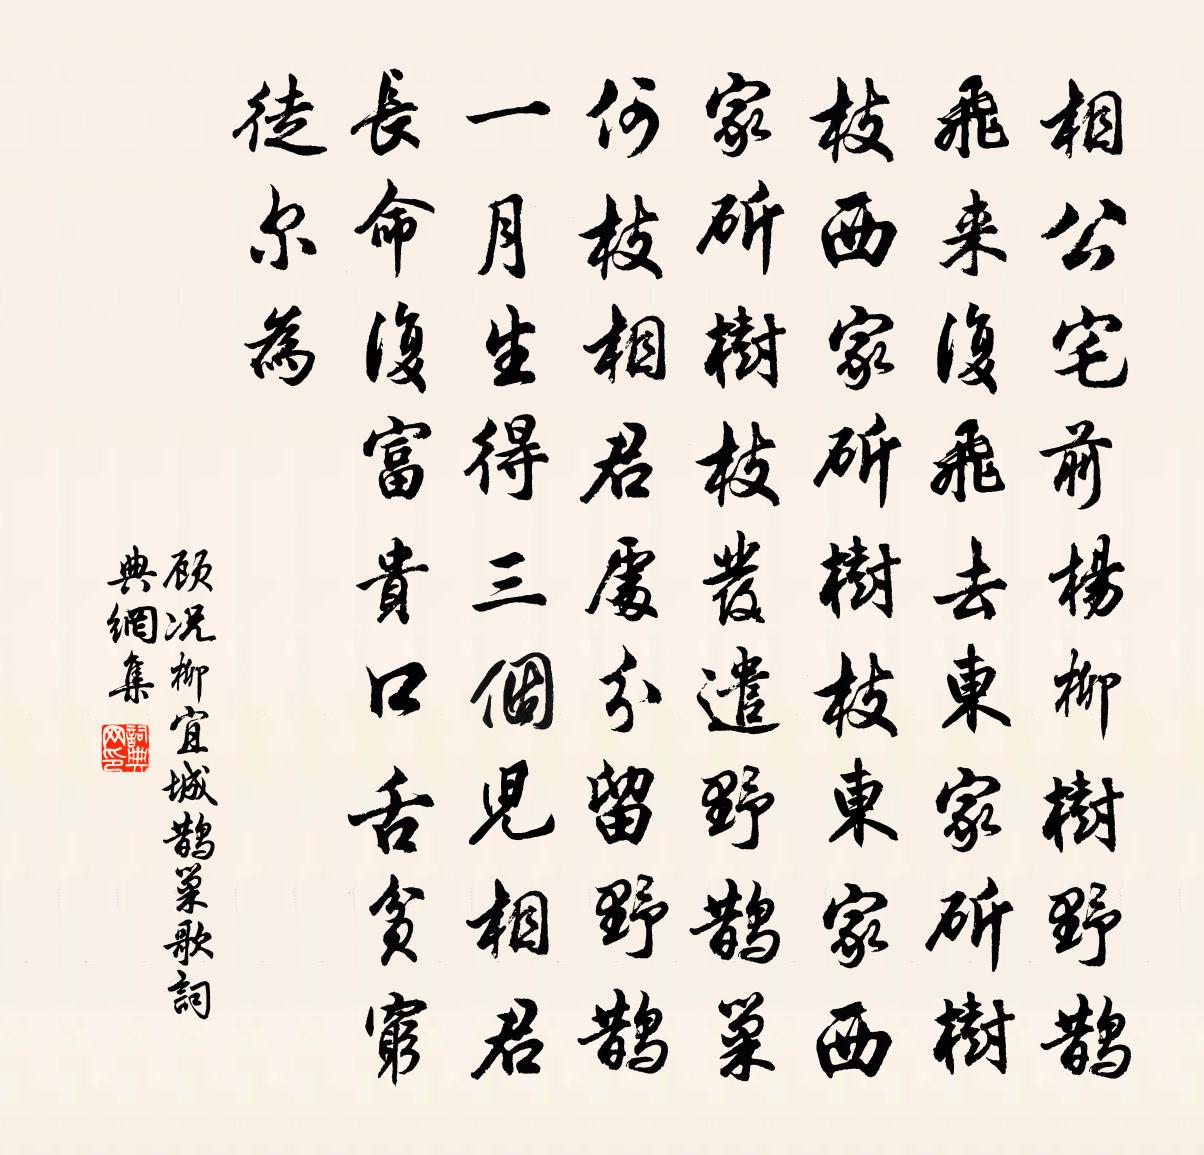 相公宅前楊柳樹野鵲
飛来復飛去東家斫樹
枝西家斫樹枝東家西
家斫樹枝發遣野鵲巢
何枝相君處分留野鵲
一月生得三個兒相君
長命復富貴口舌貧窮
徒尔為
顾况柳宜城鵲巢歌詞
典網集
詞典网印